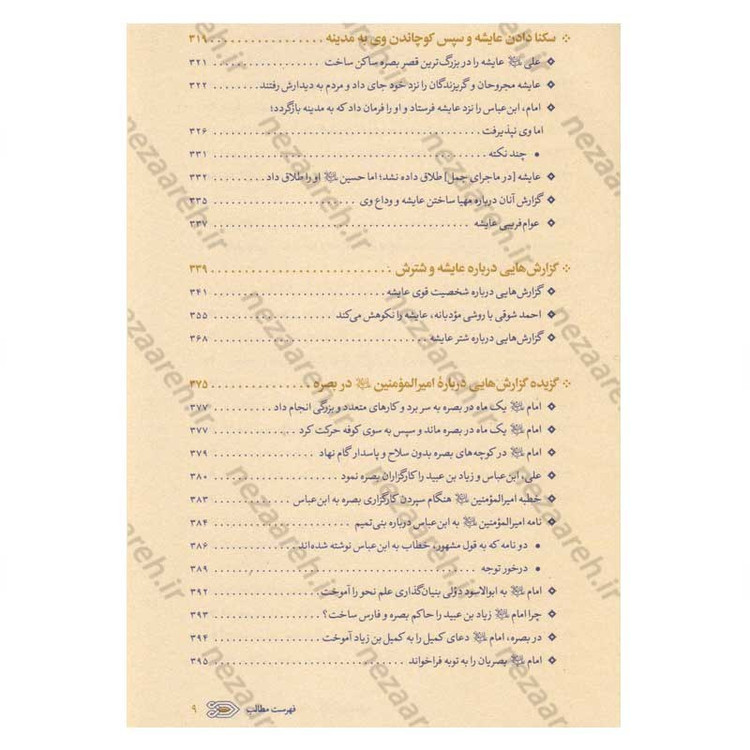 سکنا دادن عایشه و سپس کوچاندن وی به مدینه ۳۱۹
علی ﷷ عایشه را در بزرگ‌ترین قصر بصره ساکن ساخت ۳۲۱
عایشه مجروحان و گریزندگان را نزد خود جای داد و مردم به دیدارش رفتند ۳۲۲
امام، ابن‌عباس را نزد عایشه فرستاد و او را فرمان داد که به مدینه بازگردد؛
اما وی نپذیرفت ۳۲۶
• چند نکته ۳۳۱
عایشه [در ماجرای جمل] طلاق داده نشد؛ اما حسین ﷷ او را طلاق داد ۳۳۲
گزارش آنان درباره مهیا ساختن عایشه و وداع وی ۳۳۵
عوام‌فریبی عایشه ۳۳۷
گزارش‌هایی درباره عایشه و شترش ۳۳۹
گزارش‌هایی درباره شخصیت قوی عایشه ۳۴۱
احمد شوقی با روشی مؤدبانه، عایشه را نکوهش می‌کند ۳۵۵
گزارش‌هایی درباره شتر عایشه ۳۶۸
گزیده گزارش‌هایی دربارهٔ امیرالمؤمنین ﷷ در بصره ۳۷۵
امام ﷷ یک ماه در بصره به سر برد و کارهای متعدد و بزرگی انجام داد ۳۷۷
امام ﷷ یک ماه در بصره ماند و سپس به سوی کوفه حرکت کرد ۳۷۷
امام ﷷ در کوچه‌های بصره بدون سلاح و پاسدار گام نهاد ۳۷۹
علی، ابن‌عباس و زیاد بن عبید را کارگزاران بصره نمود ۳۸۰
خطبه امیرالمؤمنین ﷷ هنگام سپردن کارگزاری بصره به ابن‌عباس ۳۸۳
نامه امیرالمؤمنین ﷷ به ابن‌عباس درباره بنی‌تمیم ۳۸۴
• دو نامه که به قول مشهور، خطاب به ابن‌عباس نوشته شده‌اند ۳۸۶
• درخور توجه ۳۸۹
امام ﷷ به ابوالاسود دؤلی بنیان‌گذاری علم نحو را آموخت ۳۹۲
چرا امام ﷷ زیاد بن عبید را حاکم بصره و فارس ساخت؟ ۳۹۳
در بصره، امام ﷷ دعای کمیل را به کمیل بن زیاد آموخت ۳۹۴
امام ﷷ بصریان را به توبه فراخواند ۳۹۵
فهرست مطالب ۹
nezaareh.ir